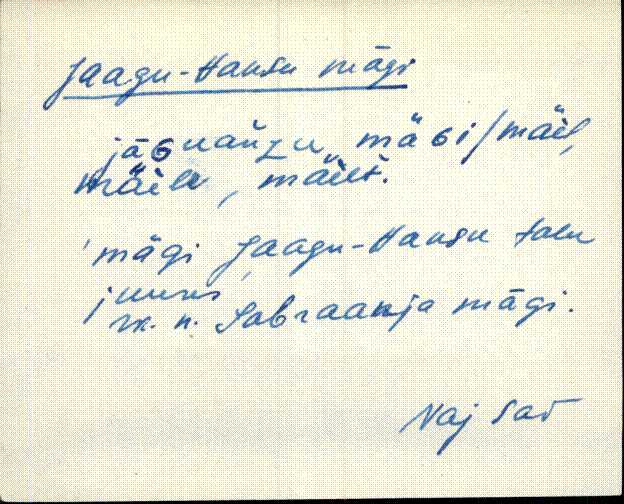 Jaagu-Hansu mägi
jāGuaňzu mäGi/mäel,
mäele, mäelt.
mägi Jaagu-Hansu talu
juures
rk. n. Sobraanja mägi.
Naj Sav